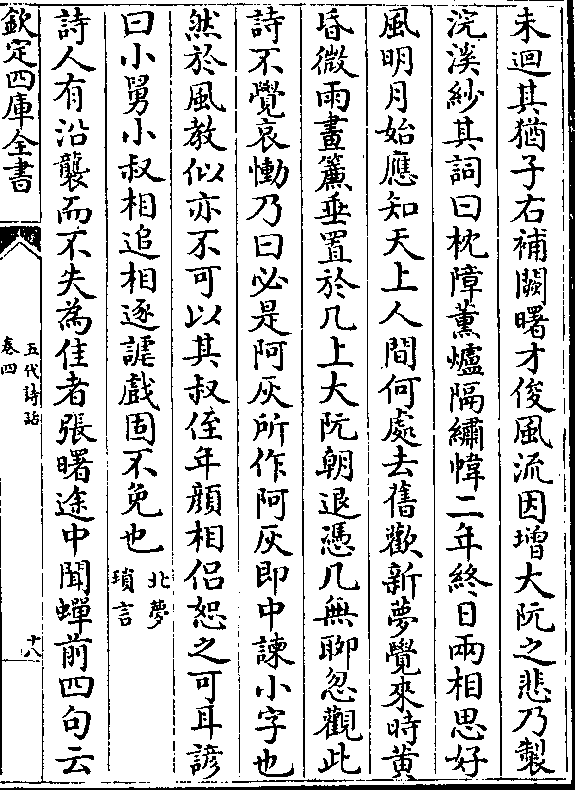 未迴其猶子右補闕曙才俊風流因增大阮之悲乃製
浣溪紗其詞曰枕障薰爐隔繡幃二年終日兩相思好
風明月始應知天上人間何處去舊歡新夢覺來時黃
昏微雨畫簾垂置於几上大阮朝退憑几無聊忽觀此
詩不覺哀慟乃曰必是阿灰所作阿灰即中諫小字也
然於風教似亦不可以其叔侄年顔相侣恕之可耳諺
曰小舅小叔相追相逐謔戲固不免也北夢
瑣言
詩人有沿襲而不失為佳者張曙途中聞蟬前四句云
欽定四庫全書
五代詩話
卷四
十八